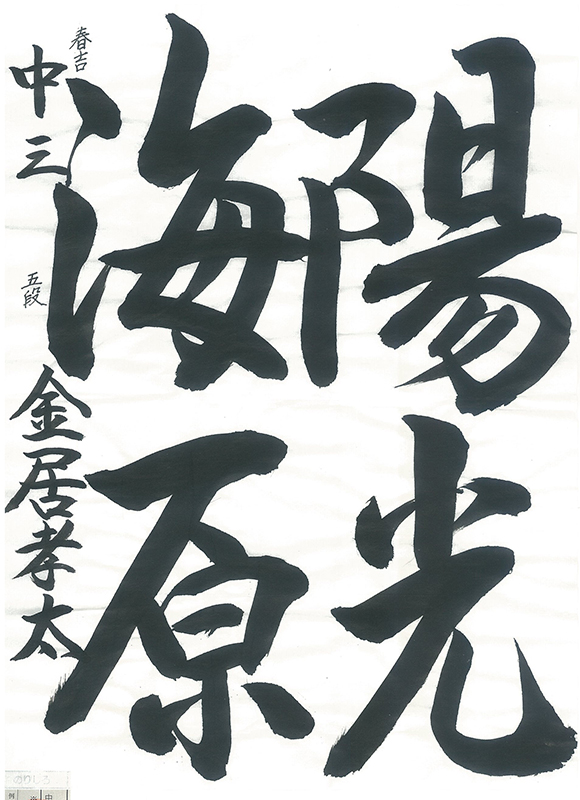 陽光
海原
春吉
中三
五段
金居孝太
のりしろ